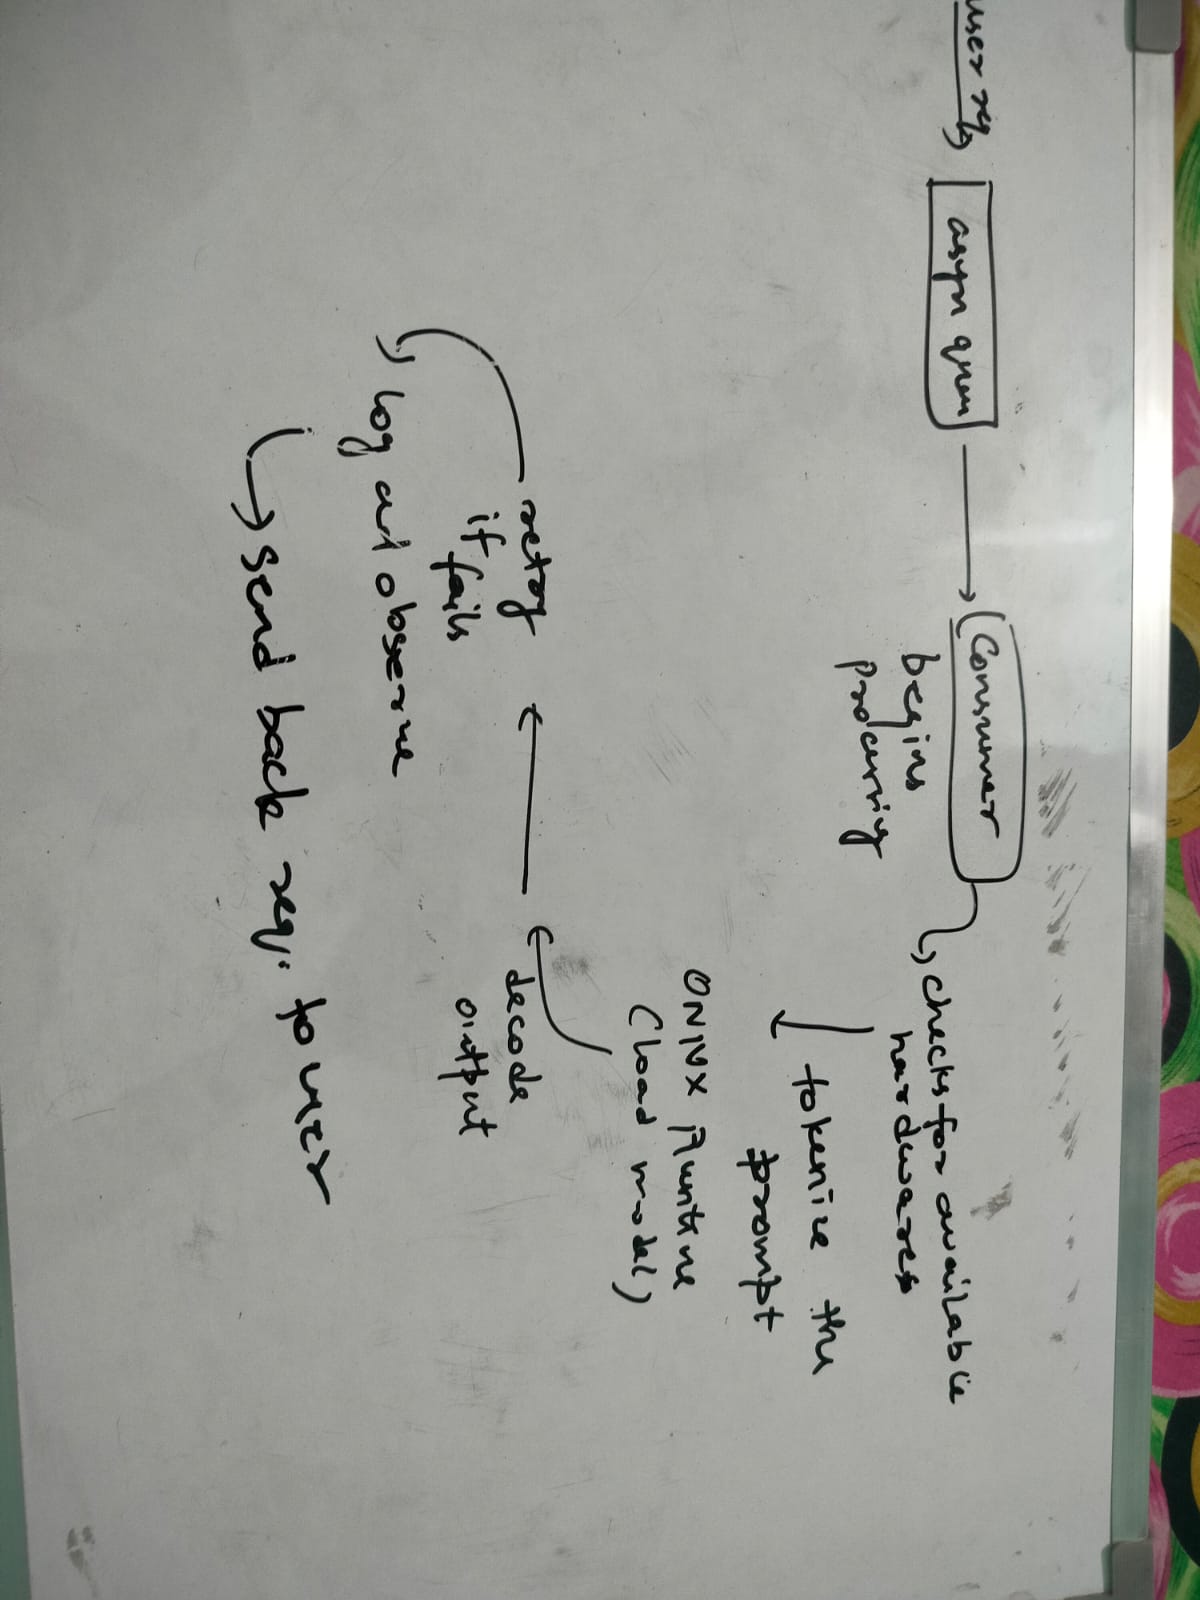 user req
asyn queu
Consumer
begins
processing
checks for available
hardwares
tokenize the
prompt
ONNX Runtime
(load model)
decode
output
retry
if fails
log and observe
send back req. to user